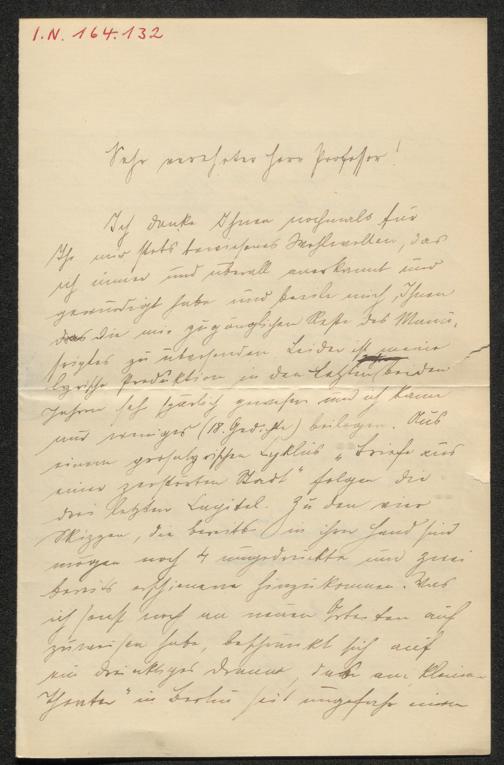 I.N. 164.132
Sehr verehrter Herr Professor!
Ich danke Ihnen nochmals für
Ihr mir stets bewiesenes Wohlwollen, das
ich immer und überall anerkannt und
gewürdigt habe und beeile mich, Ihnen
die mir zugänglichen Reste des Manu-
scriptes zu übersenden. Leider ist meine
lyrische Produktion in den letzten beiden
Jahren sehr spärlich gewesen und ich kann
nur weniges (18. Gedichte) beilegen. Aus
einem Cyklus „Briefe aus
einer zerstörten Stadt" folgen die
drei letzten Capitel. Zu den vier
Skizzen, die bereits in ihrer Hand sind
mögen noch 4 ungedruckte und zwei
bereits erschienene hinzukommen. Was
ich sonst noch an neuen Arbeiten auf
zuweisen habe, beschränkt sich auf
ein dreiaktiges Drama, das am „Kleinen
Theater" in Berlin seit ungefähr einem